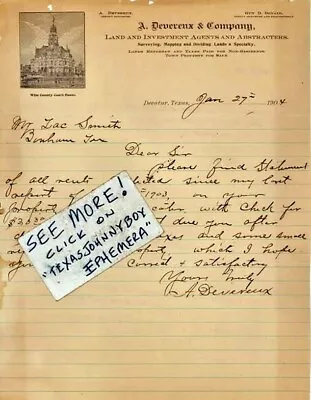 A. Devereux
Guy B. 
A. Devereux & Company,
Land and Investment Agents and Abstracters.
Surveying, Mapping and Dividing Lands a Specialty.
Lands Rendered and Taxes Paid for Non-Residents.
Town Property for Sale
Wise County Court House.
Decatur, Texas, Jan 27th 1904
Mr Zac Smith
Bonham Tex
Dear Sir
please find Statement
of all rents since my last
report of 1903, on your
property with check for
due you after
and some
property, which I hope
correct & satisfactory
Yours truly
A. Devereux
SEE MORE!
CLICK ON
"TEXASJOHNNYBOY
EPHEMERA"